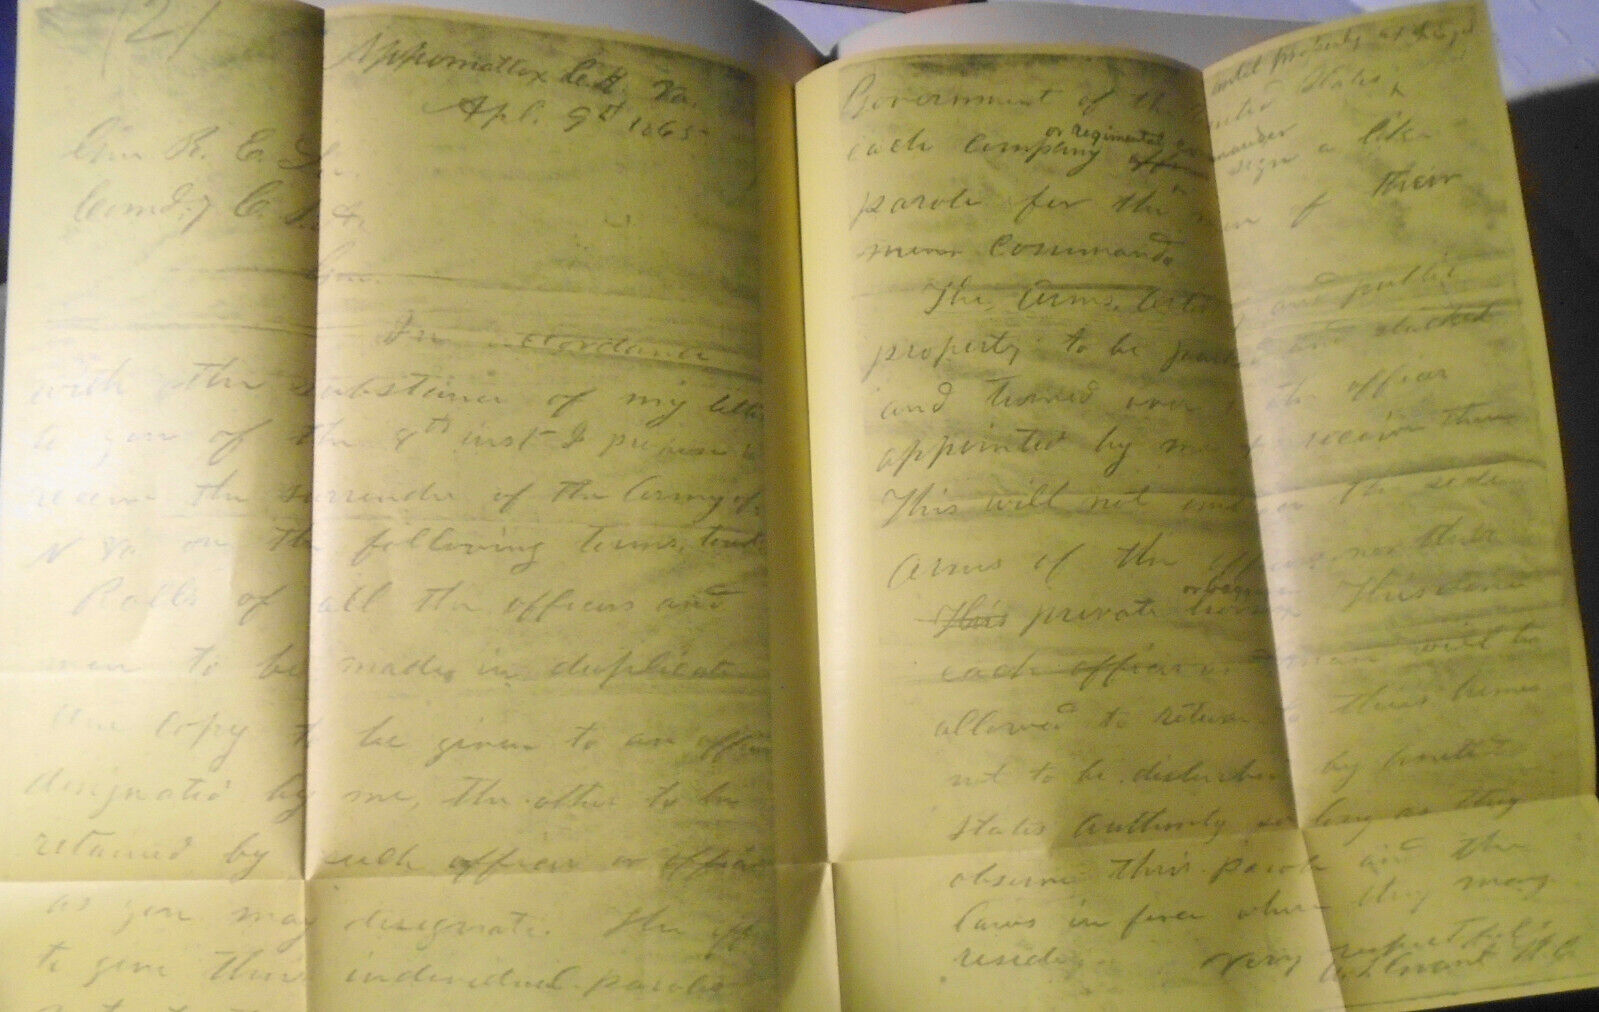 (2)
Appomattox C.H. Va.
Apl. 9th 1865
Gen R. E. L..
Comd.g C.S.A.
Gen.
In accordance
with the substance of my letter
to you of the 8th inst I propose to
receive the surrender of the Army of
N Va on the following terms, towit:
Rolls of all the officers and
men to be made in duplicate
One copy to be given to an officer
designated by me, the other to be
retained by such officer or officers
as you may designate. The officers
to give their individual paroles
until properly
Government of the United States
or regimental commander
each company officer sign a like
parole for the men of their
commands
The Arms, Artillery and public
property to be parked and stacked
and turned over to the officer
appointed by me to receive them
This will not embrace the side
Arms of the officers, nor their
or baggage
This private horses This done
each officer and man will be
allowed to return to their homes
not to be disturbed by United
States Authority so long as they
observe their parole and the
laws in force where they may
reside.
Very respectfully
U.S. Grant Lt. G